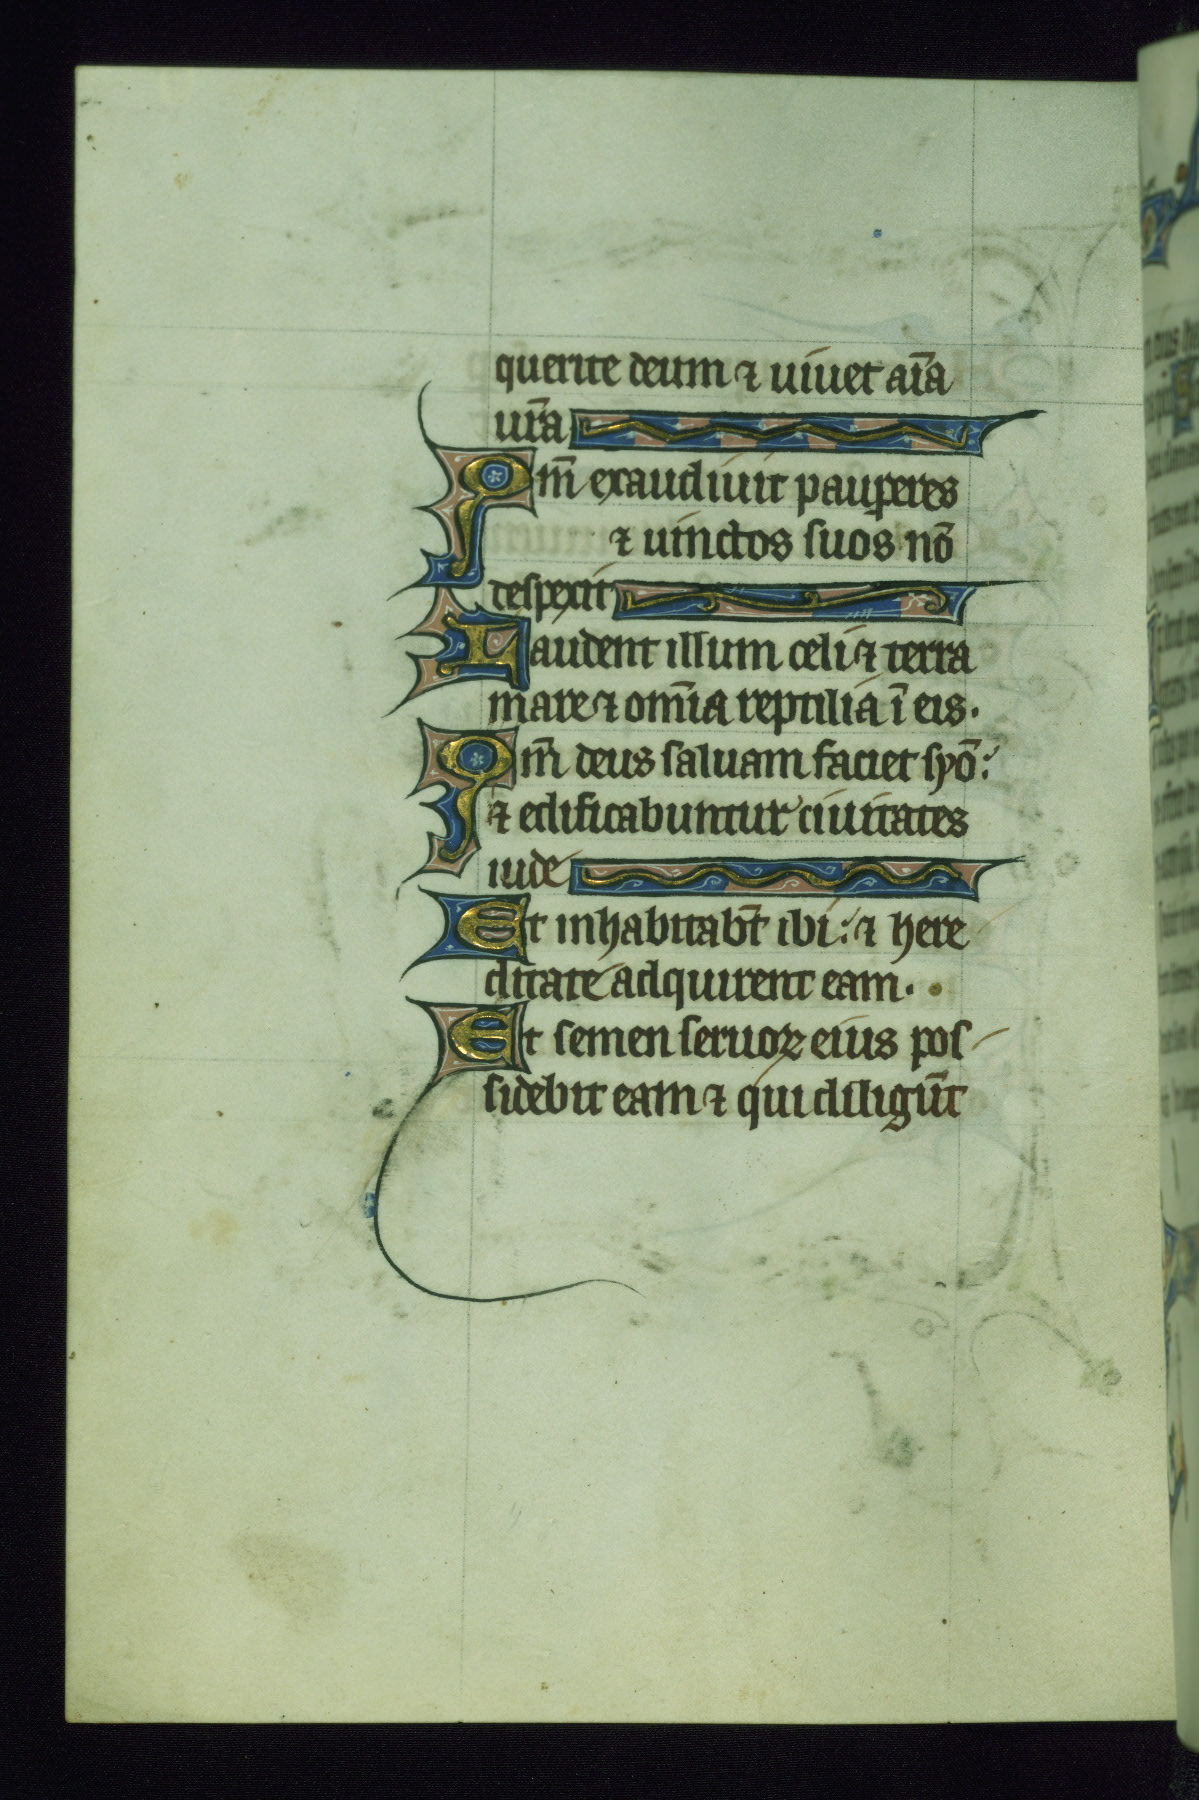 querite deum ⁊ uiuet aīa
ur̄a
Qm̄ exaudiuit pauperes
⁊ uinctos suos nō
despexit
Laudent illum celi ⁊ terra
mare ⁊ om̄ia reptilia ī eis.
Qm̄ deus saluam faciet syō:
⁊ edificabuntur ciuitates
iude
Et inhabitab̄t ibi: ⁊ here
ditate adquirent eam.
Et semen seruoꝝ eius pos
sidebit eam ⁊ qui diligūt